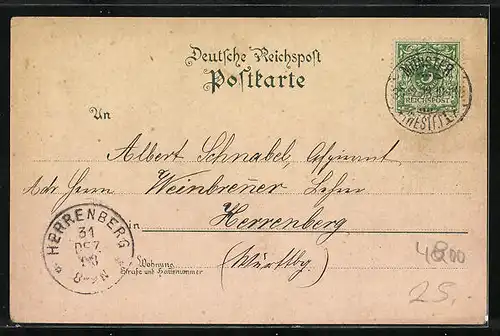 Deutsche Reichspost
Postkarte
MÜNSTER
5
REICHSPOST
(WESTF.)
An
Albert Schnabel, Aspirant
Adr Herrn Weinbrenner Lehrer
in Herrenberg
(Württbg.)
Wohnung
Straße und Hausnummer
HERRENBERG
31
DEZ
8-9N
4800
25.